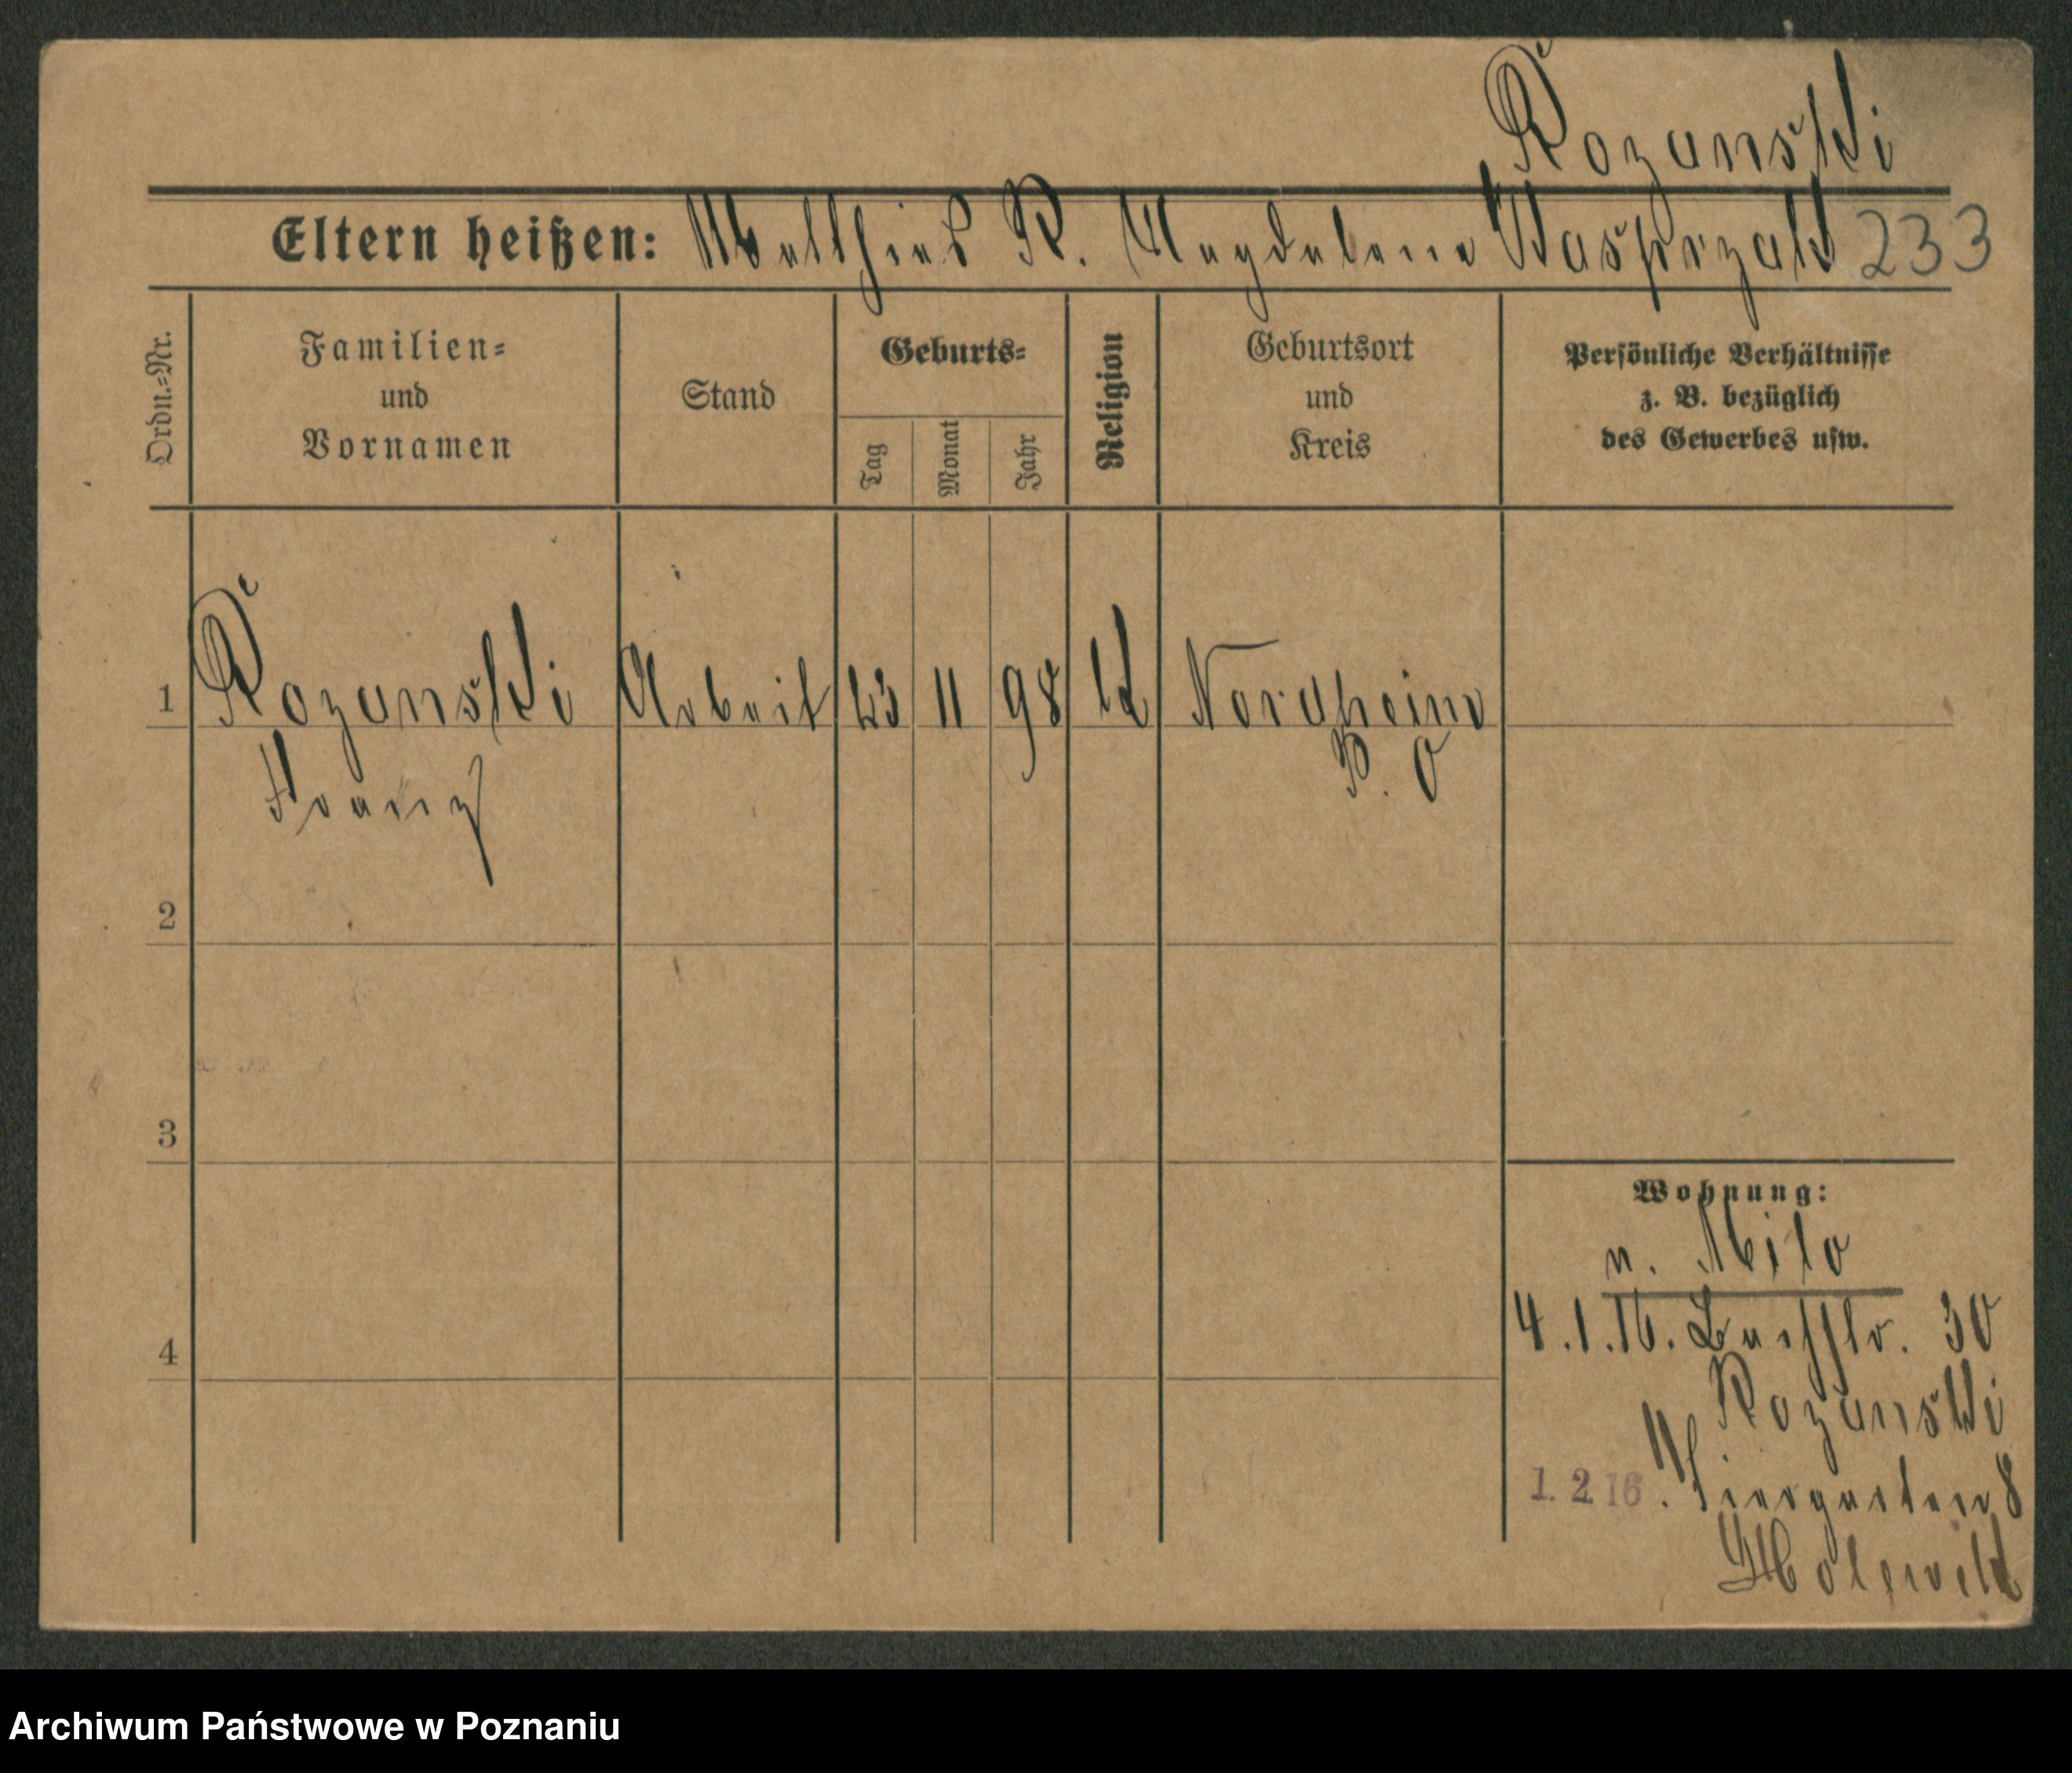 Rozanski
Eltern heißen: Matthias R. Magdalena Kasprzak 233
Ordn.=Nr.
Familien=
und
Vornamen
Stand
Geburts=
Tag
Monat
Jahr
Religion
Geburtsort
und
Kreis
Persönliche Verhältnisse
z. B. bezüglich
des Gewerbes usw.
1 Rozanski Arbeit 23 11 98 kt Nordheim
Franz P. O
2
3
4
Wohnung:
n. Milo
4.1.16. Bachstr. 30
Rozanski
1. 2 16. Tiergarten 8
Archiwum Państwowe w Poznaniu